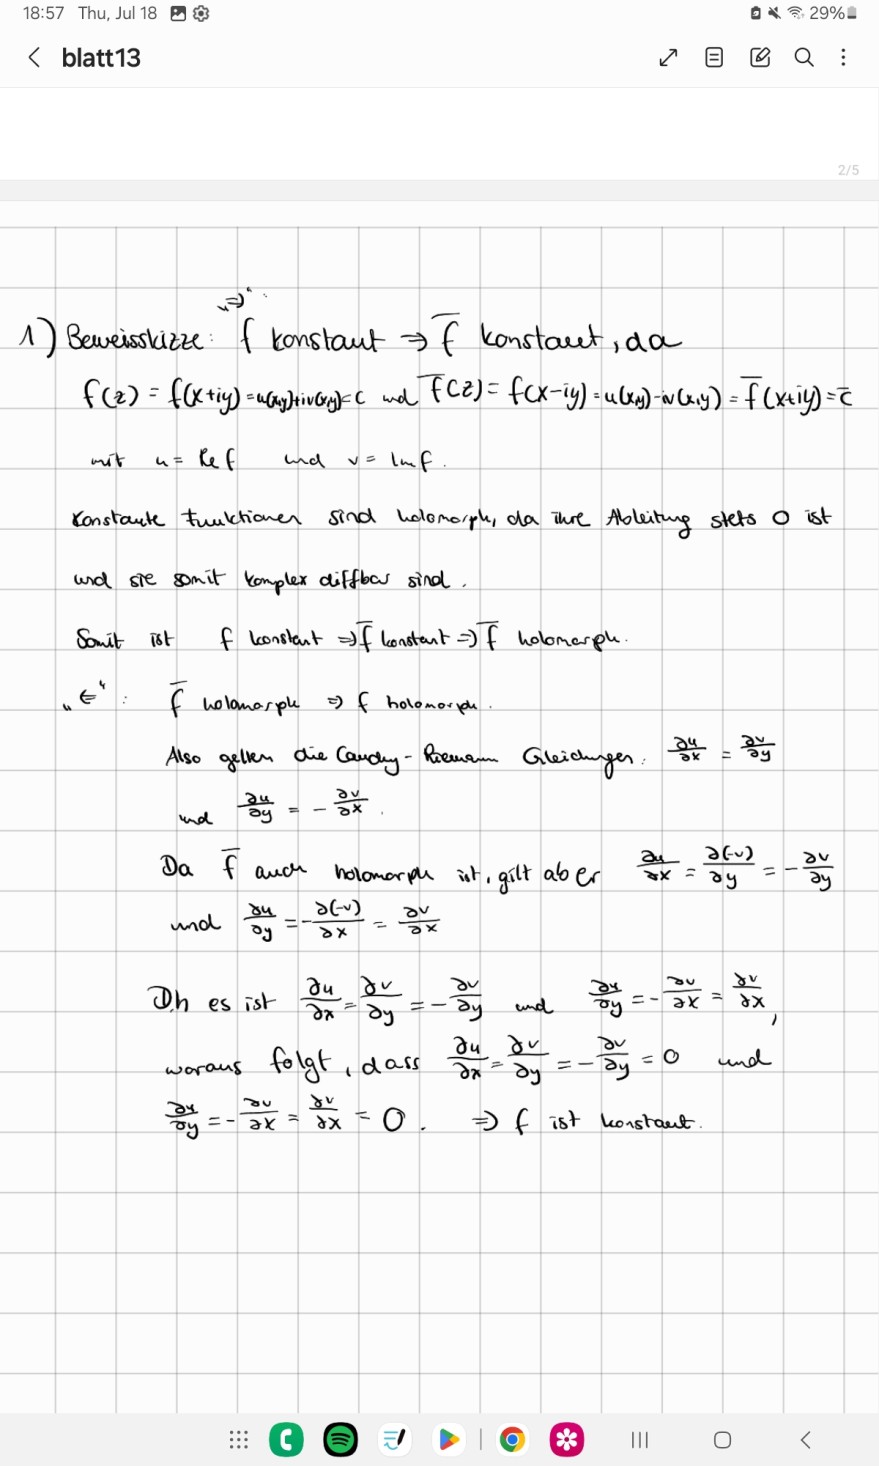 18:57 Thu, Jul 18 29%
blatt13
2/5
„⇒“ :
1) Beweisskizze: f konstant ⇒ f̅ konstant, da
f(z) = f(x+iy) = u(x,y)+iv(x,y) = c und f̅(z) = f(x-iy) = u(x,y)-iv(x,y) = f̅(x+iy) = c̅
mit u = Re f und v = Im f.
Konstante Funktionen sind holomorph, da ihre Ableitung stets 0 ist
und sie somit komplex diffbar sind.
Somit ist f konstant ⇒ f̅ konstant ⇒ f̅ holomorph.
„⇐“ : f̅ holomorph ⇒ f holomorph.
Also gelten die Cauchy-Riemann Gleichungen: ∂u/∂x = ∂v/∂y
und ∂u/∂y = - ∂v/∂x.
Da f̅ auch holomorph ist, gilt aber ∂u/∂x = ∂(-v)/∂y = - ∂v/∂y
und ∂u/∂y = - ∂(-v)/∂x = ∂v/∂x
D.h es ist ∂u/∂x = ∂v/∂y = - ∂v/∂y und ∂u/∂y = - ∂v/∂x = ∂v/∂x,
woraus folgt, dass ∂u/∂x = ∂v/∂y = - ∂v/∂y = 0 und
∂u/∂y = - ∂v/∂x = ∂v/∂x = 0. ⇒ f ist konstant.